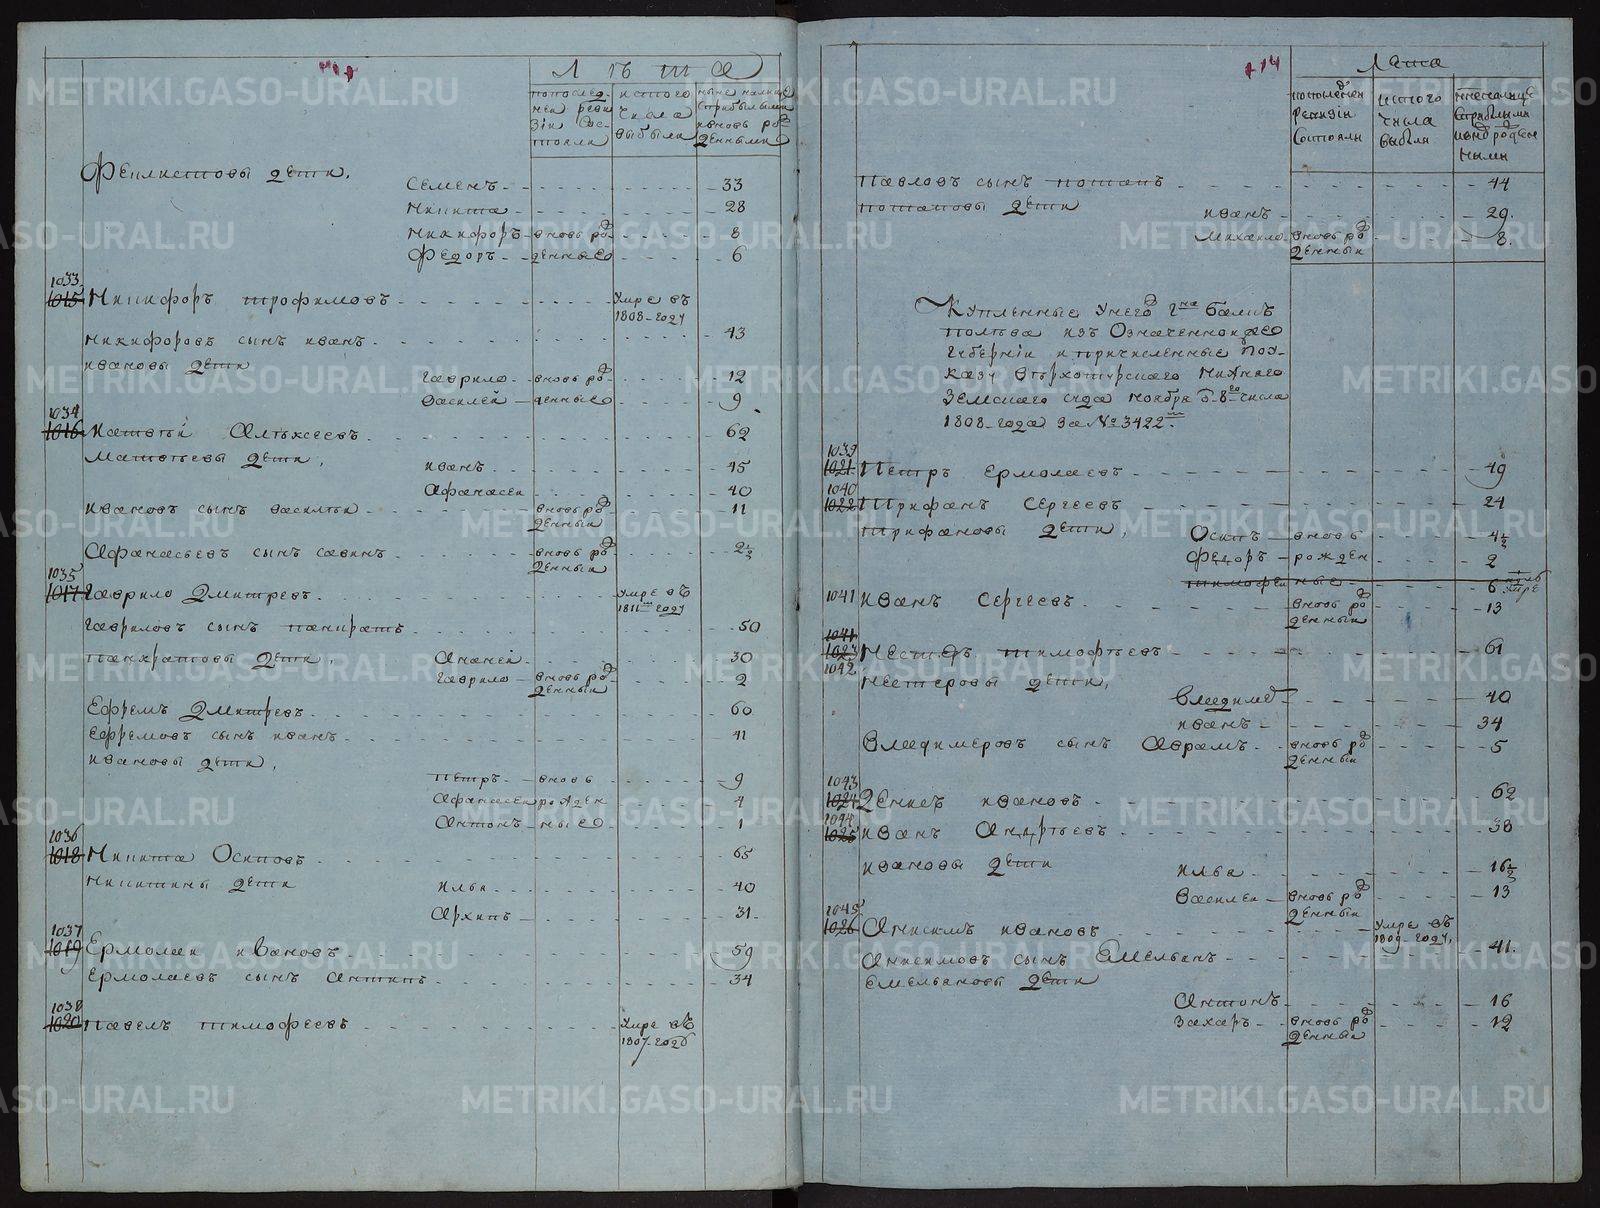 Лѣта
по послед-
ней реви
зіи сос-
тояли
из того
числа
выбыли
ныне на лицо
с прибылыми
и вновь рож
денными
Феклистовы дети.
Семенъ 33
Никита 28
Никифоръ вновь рож 8
Федоръ денные 6
1033
1015 Никифоръ Трофимовъ умре въ
1808 году
Никифоровъ сынъ Иванъ 43
Ивановы дети
Гаврило вновь рож 12
Василей денные 9
1034
1016 Матвѣй Алѣксеевъ 62
Матвѣевы дети,
Иванъ 45
Афанасеи 40
Ивановъ сынъ Василеи вновь рож 11
денныи
Афанасьевъ сынъ Савинъ вновь рож 2½
денныи
1035
1017 Гаврило Дмитревъ умре въ
1811м году
Гавриловъ сынъ Панкратъ 50
Панкратовы дети, Ананеи 30
Гаврило вновь рож 2
денныи
Ефремъ Дмитревъ 60
Ефремовъ сынъ Иванъ 41
Ивановы дети,
Петръ вновь 9
Афанасеи рожден 4
Антонъ ные 1
1036
1018 Никита Осиповъ 65
Никитины дети
Илья 40
Архипъ 31
1037
1019 Ермолаи Ивановъ 59
Ермолаевъ сынъ Антипъ 34
1038
1020 Павелъ Тимофеевъ умре въ
1807 году
414
Лѣта
по последней
ревизіи
состояли
из того
числа
выбыли
ныне на лицо
с прибылыми
и вновь рожден
ными
Павловъ сынъ Потапъ 44
Потаповы дети
Иванъ 29
Михаило вновь рож 8
денныи
Купленные у него
из Означенной же
Губерніи и причисленные по у-
казу Вѣрхотурского нижнего
Земского суда ноября в 8е число
1808 года за №3422м.
1039
1021 Петръ Ермолаевъ 49
1040
1022 Трифанъ Сергеевъ 24
Трифановы дети,
Осипъ вновь 4½
Федоръ рожден 2
Тимофеи ные 6 умре
1041 Иванъ Сергеевъ вновь рож 13
денныи
1041
1023 Нестеръ Тимофѣевъ 61
1042
Нестеровы дети,
Владимеръ 40
Иванъ 34
Владимеровъ сынъ Аврамъ вновь рож 5
денныи
1043
1024 Денисъ Ивановъ 62
1044
1025 Иванъ Андрѣевъ 38
Ивановы дети
Илья 16½
Василеи вновь рож 13
денныи
1045
1026 Анисимъ Ивановъ умре въ
1809 году
Анисимовъ сынъ Емельянъ 41
Емельяновы дети
Антонъ 16
Захаръ вновь рож 12
денныи
METRIKI.GASO-URAL.RU